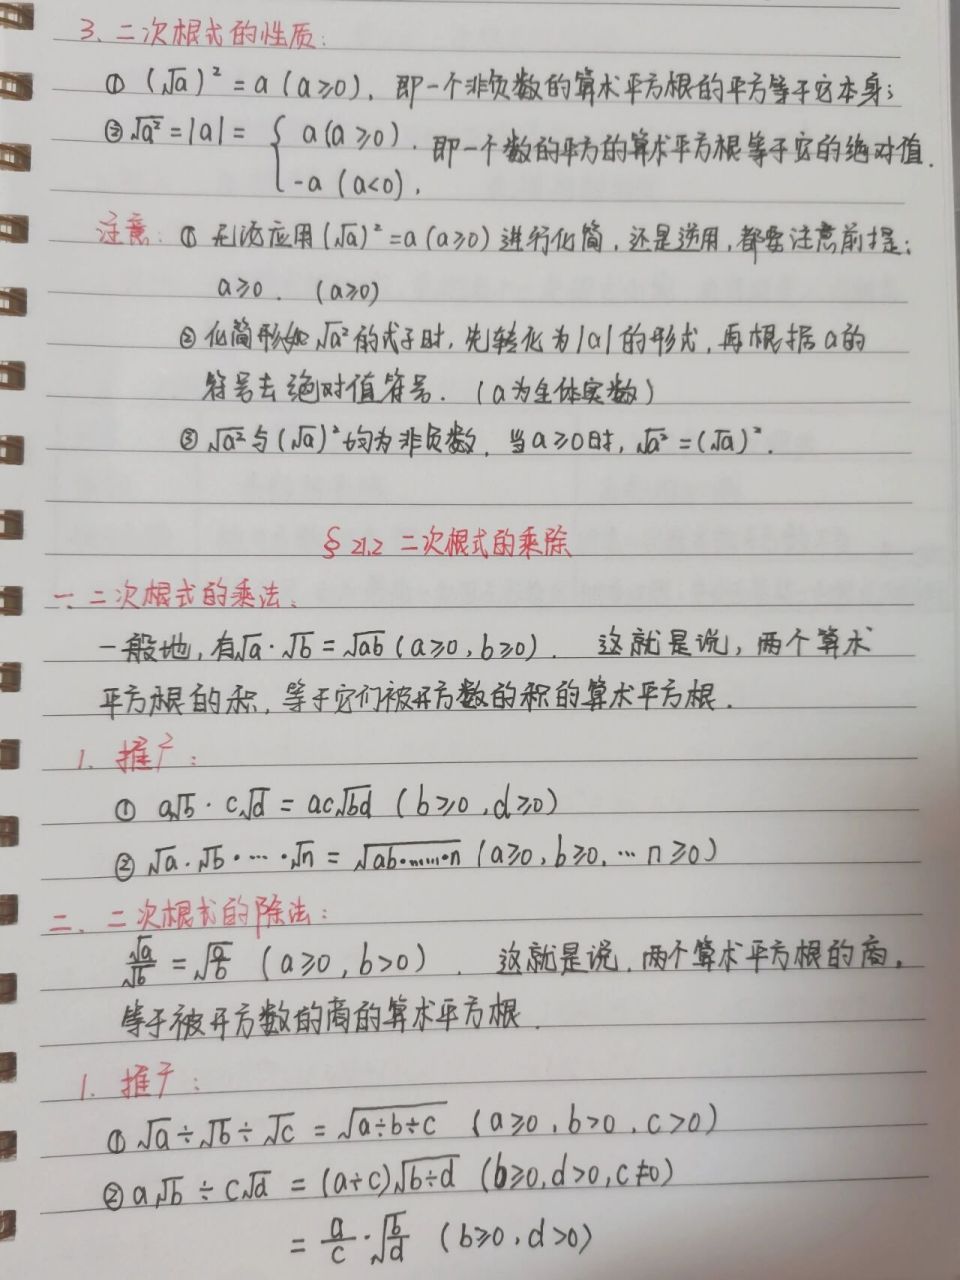 3、二次根式的性质：
① (√a)² = a (a≥0)，即一个非负数的算术平方根的平方等于它本身；
② √a² = |a| = { a (a≥0)，即一个数的平方的算术平方根等于它的绝对值.
-a (a<0)，
注意：① 无论应用(√a)² = a (a≥0)进行化简，还是逆用，都要注意前提：
a≥0．(a≥0)
② 化简形如√a²的式子时，先转化为|a|的形式，再根据a的
符号去绝对值符号．(a为全体实数)
③ √a²与(√a)²均为非负数，当a≥0时，√a² = (√a)²．
§ 21.2 二次根式的乘除
一、二次根式的乘法：
一般地，有√a·√b = √ab (a≥0, b≥0)．这就是说，两个算术
平方根的积，等于它们被开方数的积的算术平方根．
1、推广：
① a√b · c√d = ac√bd (b≥0, d≥0)
② √a · √b · … · √n = √ab·……·n (a≥0, b≥0, … n≥0)
二、二次根式的除法：
√a/√b = √(a/b) (a≥0, b>0)．这就是说，两个算术平方根的商，
等于被开方数的商的算术平方根．
1、推广：
① √a÷√b÷√c = √a÷b÷c (a≥0, b>0, c>0)
② a√b ÷ c√d = (a÷c)√b÷d (b≥0, d>0, c≠0)
= a/c · √(b/d) (b≥0, d>0)